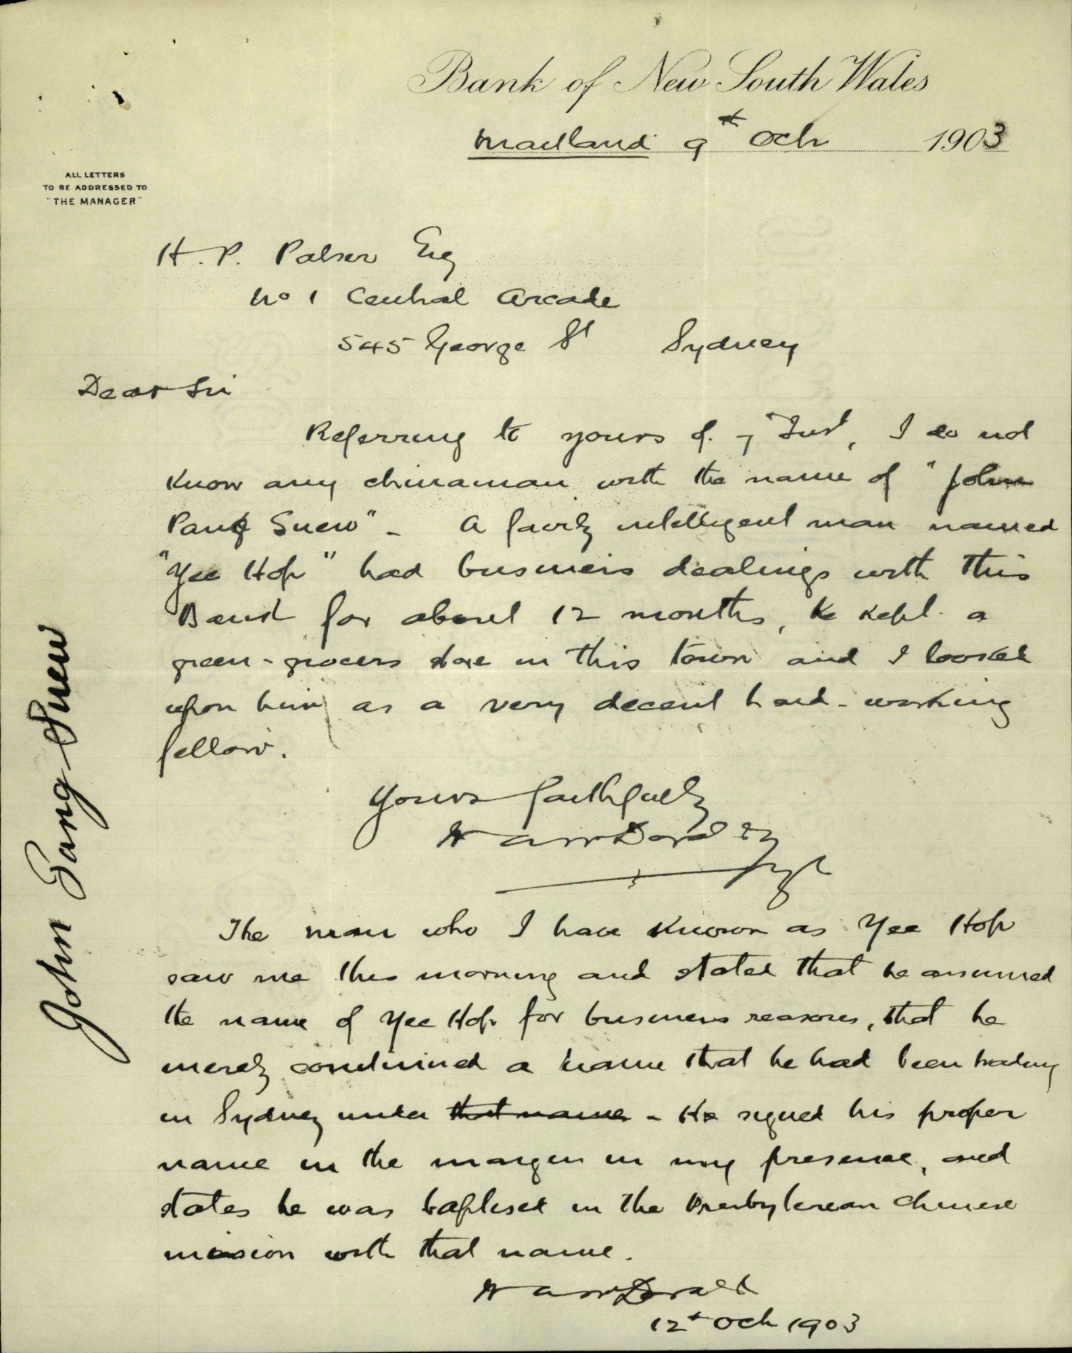 Bank of New South Wales
Maitland 9th Oct 1903
ALL LETTERS
TO BE ADDRESSED TO
"THE MANAGER"
H. P. Palser Esq
No 1 Central Arcade
545 George St Sydney
Dear Sir
Referring to yours of 7 Inst, I do not
know any chinaman with the name of "John
Pang Suew" - A fairly intelligent man named
"Yee Hop" had business dealings with this
Bank for about 12 months, he kept a
green-grocers store in this town and I looked
upon him as a very decent hard-working
fellow.
Yours faithfully
The man who I have known as Yee Hop
saw me this morning and stated that he assumed
the name of Yee Hop for business reasons, that he
merely continued a name that he had been trading
in Sydney under that name - He signed his proper
name in the margin in my presence, and
states he was baptised in the Presbyterian Chinese
mission with that name.
12th Oct 1903
John Pang Suew